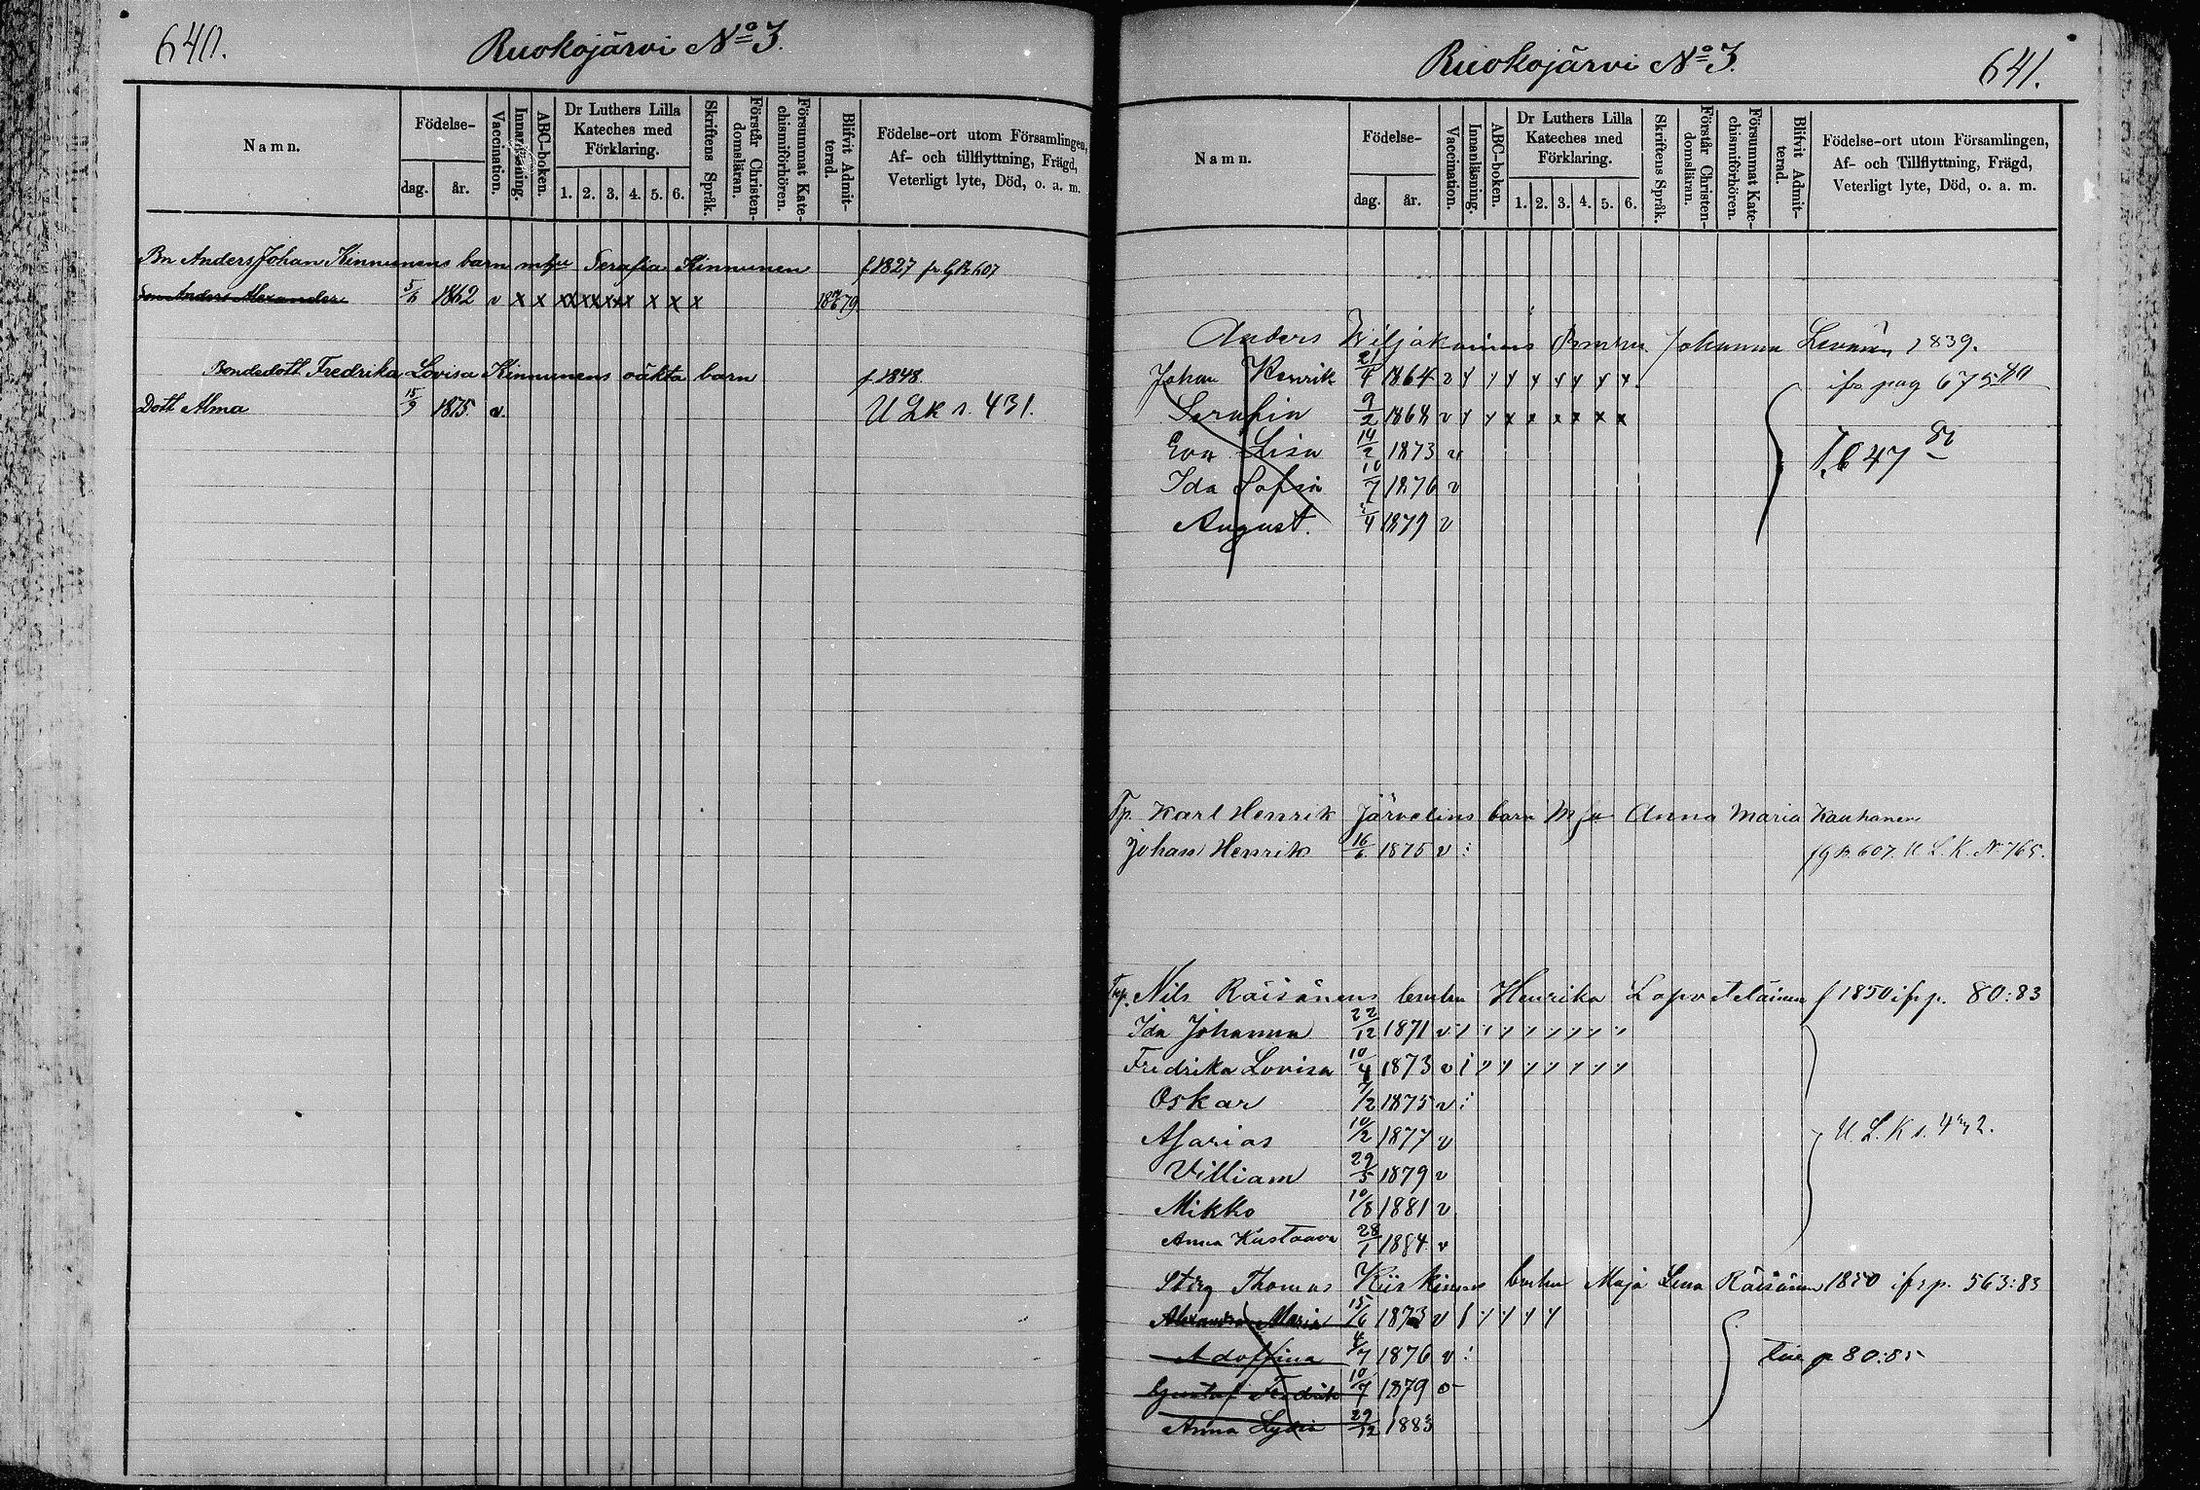 640.
Ruokojärvi No 3.
Namn.
Födelse-
dag.
år.
Vaccination.
Innanläsning.
ABC-boken.
Dr Luthers Lilla Kateches med Förklaring.
1. 2. 3. 4. 5. 6.
Skriftens Språk.
Förstår Christen-domsläran.
Försummat Kate-chismiförhören.
Blifvit Admit-terad.
Födelse-ort utom Församlingen,
Af- och tillflyttning, Frägd,
Veterligt lyte, Död, o. a. m.
Bn Anders Johan Kinnunens barn m hu Serafia Kinnunen f 1827 fr G K 607
Son Anders Alexander 5/6 1862 v x x xx xx xxx x x x 79
Bondedott. Fredrika Lovisa Kinnunens oäkta barn f. 1848.
Dott Alma 15/9 1875 v U L K s. 431.
Ruokojärvi No 3.
641.
Namn.
Födelse-
dag.
år.
Vaccination.
Innanläsning.
ABC-boken.
Dr Luthers Lilla Kateches med Förklaring.
1. 2. 3. 4. 5. 6.
Skriftens Språk.
Förstår Christen-domsläran.
Försummat Kate-chismiförhören.
Blifvit Admit-terad.
Födelse-ort utom Församlingen,
Af- och Tillflyttning, Frägd,
Veterligt lyte, Död, o. a. m.
Anders Wiljakainens Johanna 1839.
Johan Henrik 21/4 1864 v ifr pag 675
Serafin 9/2 1868 v x x x x x x
Eva Lisa 14/2 1873 v 647
Ida Sofia 10/7 1876 v
August. /4 1879 v
Tp. Karl Henrik Järvelins barn M hu Anna Maria Kauhanen
Johan Henrik 16/6 1875 v fG K 607. U. L. K. N. 765.
Nils Räisänens Henrika Lapveteläinen f 1850 ifr p. 80:83
Ida Johanna 22/12 1871 v
Fredrika Lovisa 10/4 1873 v
Oskar 7/2 1875 v
Asarias 10/2 1877 v U. L. K s. 432.
Villiam 29/5 1879 v
Mikko 10/8 1881 v
Anna Kustaava 28/1 1884 v
Thomas Kiiskinens Maja Lena Räisänen 1850 ifr p. 563:83
Alexandra Maria 15/6 1873 v
Adolfina 4/7 1876 v p 80:85
Gustaf Fredrik 10/7 1879 v
Anna Lydia 29/12 1883